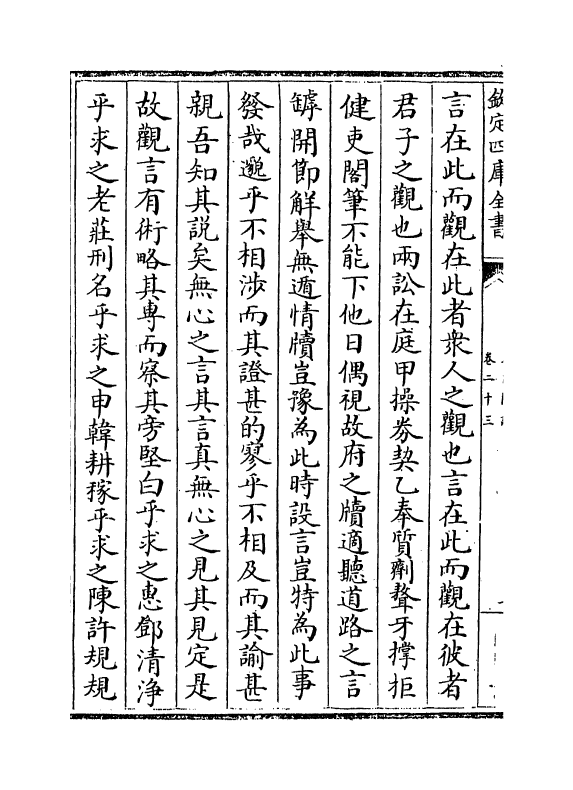 欽定四庫全書
卷二十三
言在此而觀在此者衆人之觀也言在此而觀在彼者
君子之觀也兩訟在庭甲操券契乙奉質劑聱牙撑拒
健吏閣筆不能下他日偶視故府之牘適聽道路之言
罅開節解舉無遁情牘豈豫為此時設言豈特為此事
發哉邈乎不相涉而其證甚的寥乎不相及而其諭甚
親吾知其説矣無心之言其言真無心之見其見定是
故觀言有術略其専而察其旁堅白乎求之惠鄧清浄
乎求之老莊刑名乎求之申韓耕稼乎求之陳許規規